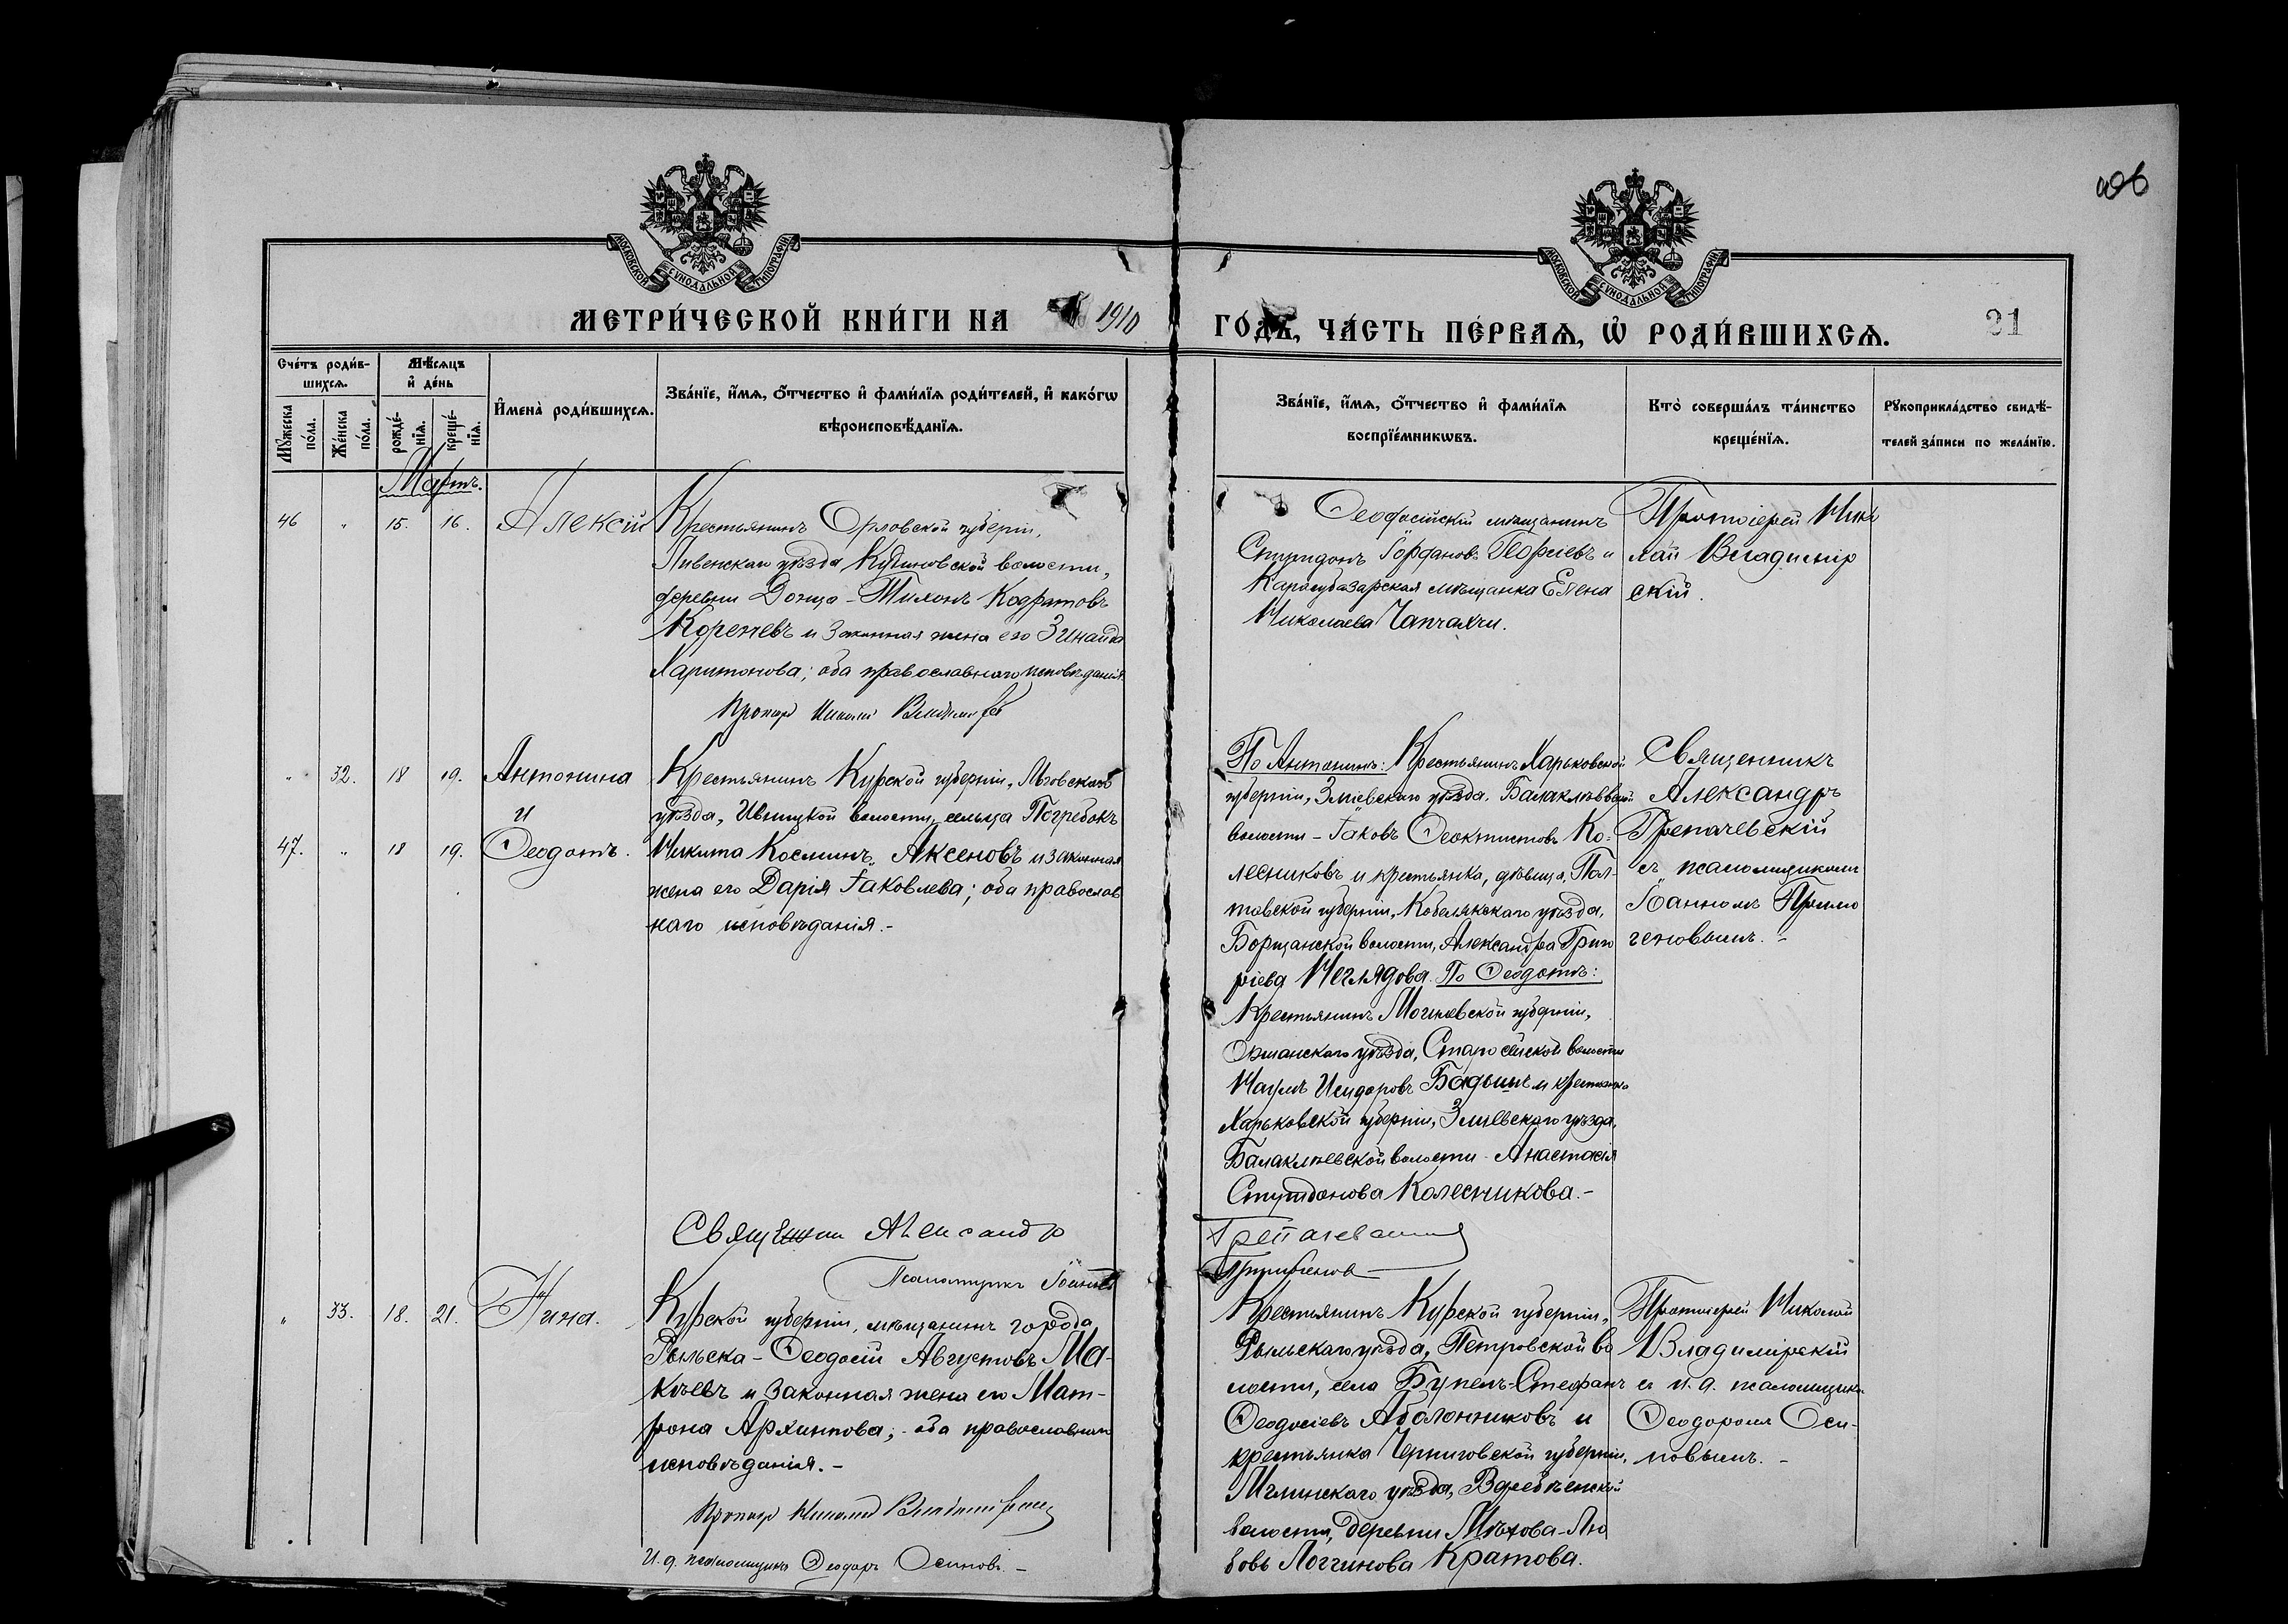 406
МОСКОВСКОЙ СУНОДАЛЬНОЙ ТИПОГРАФІИ
МОСКОВСКОЙ СУНОДАЛЬНОЙ ТИПОГРАФІИ
МЕТРИ́ЧЕСКОЙ КНИ́ГИ НА 1910
ГО́ДЪ, ЧА́СТЬ ПЕ́РВАѦ, Ѡ҆ РОДИ́ВШИХСѦ.
21
Сче́тъ роди́в-
шихсѧ.
Мѹ́жеска по́ла.
Же́нска по́ла.
Мѣ́сѧцъ
и҆ де́нь
рожде́-
нїѧ.
креще́-
нїѧ.
И҆мена̀ роди́вшихсѧ.
Зва́нїе, и҆́мѧ, ѻ҆́тчество и҆ фами́лїѧ роди́телей, и҆ како́гѡ
вѣроисповѣ́данїѧ.
Зва́нїе, и҆́мѧ, ѻ҆́тчество и҆ фами́лїѧ
воспрїе́мникѡвъ.
Кто̀ соверша́лъ та́инство
креще́нїѧ.
Рꙋкоприкла́дство свидѣ́-
телей за́писи по жела́нїю.
Мартъ.
46 " 15. 16. Алексій
Крестьянинъ Орловской губерніи,
Ливенскаго уѣзда, волости,
деревни Донца - Тихонъ Кодратовъ
Кореневъ и законная жена его Зинаида
Харитонова; оба православнаго исповѣданія
Ѳеодосійскій мѣщанинъ
Спиридонъ Іордановъ Георгіевъ и
Карасубазарская мѣщанка Елена
Николаева Чапчахчи.
Протоіерей Нико
лай Владимір
скій.
" 32. 18 19. Антонина
и
47. " 18 19. Ѳеодотъ.
Крестьянинъ Курской губерніи, Льговскаго
уѣзда, Ивницкой волости, сельца Погребокъ
Никита Косминъ Аксеновъ и законная
жена его Дарія Іаковлева; оба православ
наго исповѣданія.-
По Антонинѣ: Крестьянинъ Харьковской
губерніи, Зміевскаго уѣзда, Балаклѣевской
волости - Іаковъ Ѳеоктистовъ Ко-
лесниковъ и крестьянка, дѣвица, Пол-
тавской губерніи, Кобелякскаго уѣзда,
Борщанской волости, Александра Григо
ріева Неглядова. По Ѳеодотѣ:
Крестьянинъ Могилевской губерніи,
Оршанскаго уѣзда, Старосельской волости
Наумъ Исидоровъ и крестьянка
Харьковской губерніи, Зміевскаго уѣзда,
Балаклѣевской волости - Анастасія
Спиридонова Колесникова.-
Священникъ
Александръ
Грепачевскій
съ псаломщикомъ
Іоанномъ Примо
геновымъ. -
Священник Александр
Псаломщикъ Іоаннъ
" 33. 18. 21. Нина.
Курской губерніи, мѣщанинъ города
Рыльска - Ѳеодосій Августовъ Ма-
кѣевъ и законная жена его Мат-
рона Архиппова; - оба православнаго
исповѣданія. -
И. д. псаломщика Ѳеодоръ Осиповъ. -
Крестьянинъ Курской губерніи,
Рыльскаго уѣзда, Петровской во
лости, села Бупелъ - Стефанъ
Ѳеодосіевъ Аболонниковъ и
крестьянка Черниговской губерніи,
Мглинскаго уѣзда,
волости, деревни Мѣхова - Лю
бовь Логгинова Кратова.
Протоіерей Николай
Владимірскій
съ и. д. псаломщика
Ѳеодоромъ Оси-
повымъ. -